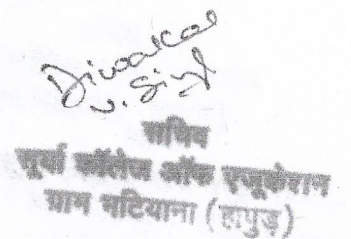 Diwakar
v. Singh
सचिव
सूर्या कॉलेज ऑफ एजूकेशन
ग्राम भटियाना (हापुड़)